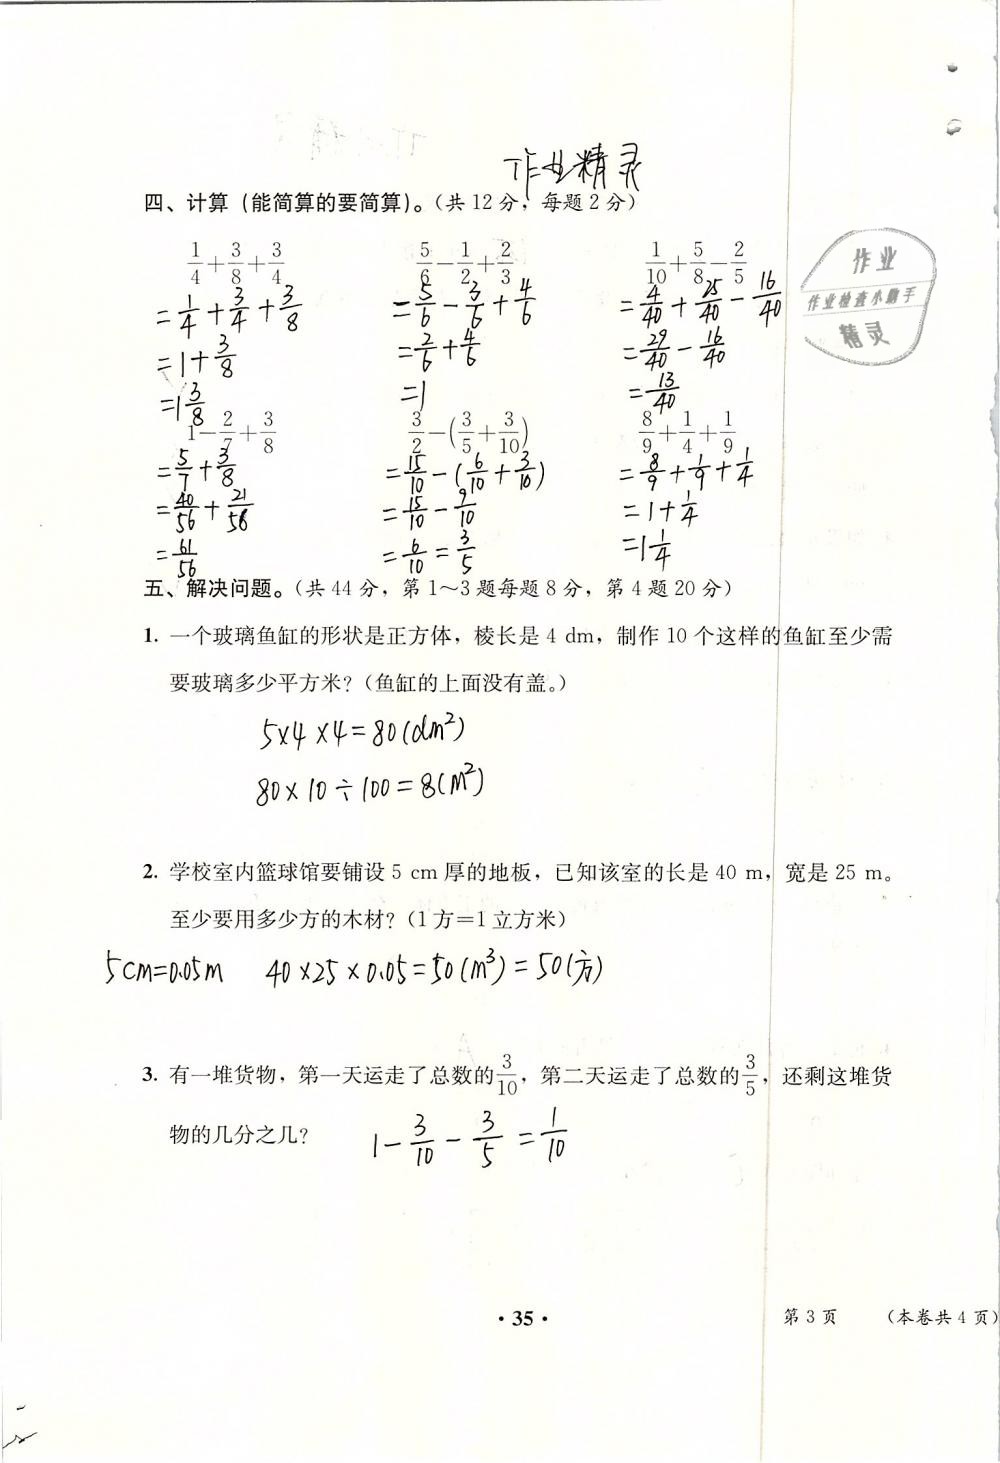 作业精灵
四、计算（能简算的要简算）。（共12分，每题2分）
1/4+3/8+3/4 5/6-1/2+2/3 1/10+5/8-2/5
=1/4+3/4+3/8 =5/6-3/6+4/6 =4/40+25/40-16/40
=1+3/8 =2/6+4/6 =29/40-16/40
=1 3/8 =1 =13/40
1-2/7+3/8 3/2-(3/5+3/10) 8/9+1/4+1/9
=5/7+3/8 =15/10-(6/10+3/10) =8/9+1/9+1/4
=40/56+21/56 =15/10-9/10 =1+1/4
=61/56 =6/10=3/5 =1 1/4
五、解决问题。（共44分，第1～3题每题8分，第4题20分）
1. 一个玻璃鱼缸的形状是正方体，棱长是4 dm，制作10个这样的鱼缸至少需
要玻璃多少平方米？（鱼缸的上面没有盖。）
5×4×4=80(dm²)
80×10÷100=8(m²)
2. 学校室内篮球馆要铺设5 cm厚的地板，已知该室的长是40 m，宽是25 m。
至少要用多少方的木材？（1方=1立方米）
5cm=0.05m 40×25×0.05=50(m³)=50(方)
3. 有一堆货物，第一天运走了总数的3/10，第二天运走了总数的3/5，还剩这堆货
物的几分之几？ 1-3/10-3/5=1/10
·35· 第3页 （本卷共4页）
作业
作业检查小助手
精灵